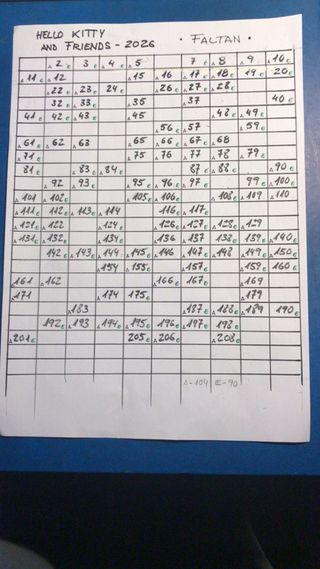 HELLO KITTY
AND FRIENDS - 2026 · FALTAN ·
2 3 4 5 7 8 9 10
11 12 15 16 17 18 19 20
22 23 24 26 27 28
32 33 35 37 40
41 42 43 45 48 49
56 57 59
61 62 63 65 66 67 68
71 75 76 77 78 79
81 83 84 87 88 90
92 93 95 96 97 99 100
101 102 105 106 108 109 110
111 112 113 114 116 117
121 122 124 126 127 128 129
131 132 134 136 137 138 139 140
142 143 144 145 146 147 148 149 150
154 155 157 159 160
161 162 166 167 169
171 174 175 179
183 187 188 189 190
192 193 194 195 196 197 198
201 205 206 208
A-104 E-90